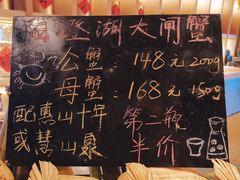 澄湖大闸蟹
公蟹:148元 200g
母蟹:168元 150g
配惠山十年 第二瓶
或慧山泉 半价